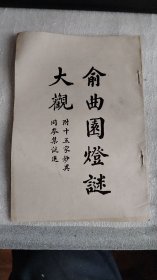 俞曲園燈謎
大觀
附十五家妙契
同岑集謎選